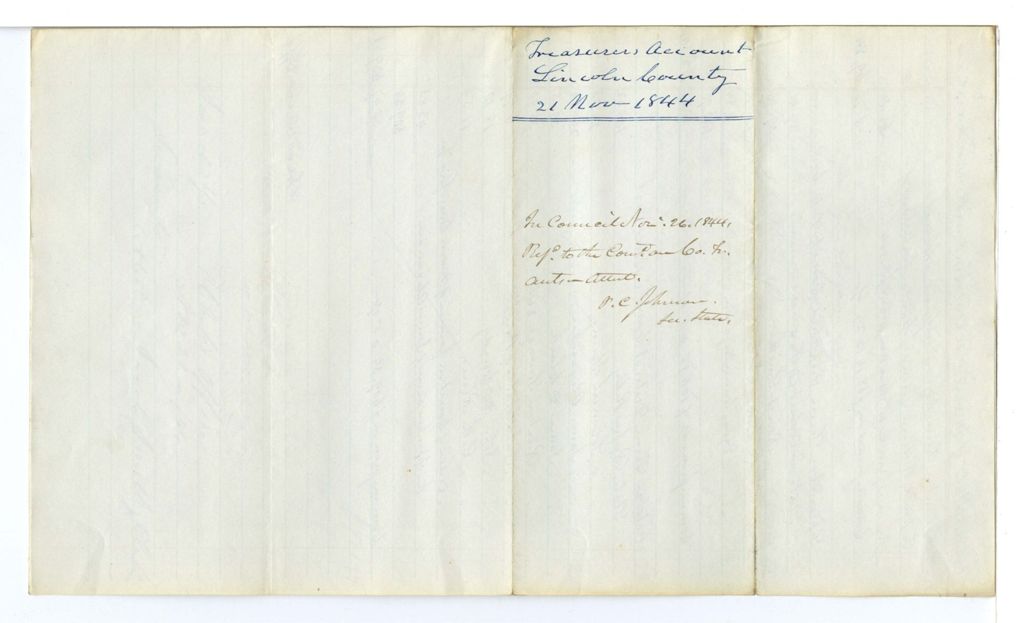 Treasurers Account
Lincoln County
21 Nov 1844
In Council Nov. 26. 1844.
Refd. to the Com. on Co.
P. C. Johnson.
Sec. State.